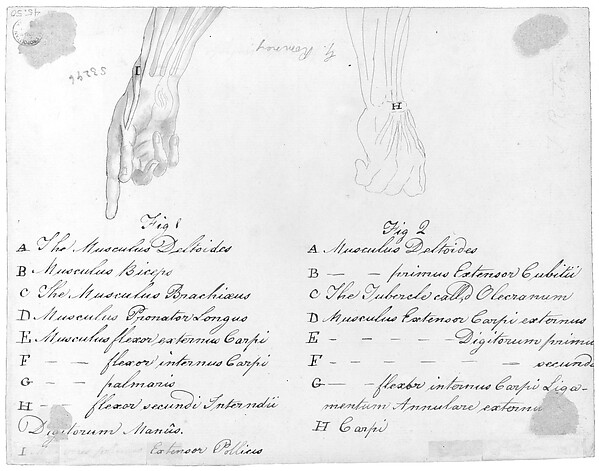 46.50
53296
G. Romney
I
H
Fig 1
A The Musculus Deltoides
B Musculus Biceps
C The Musculus Brachiæus
D Musculus Pronator Longus
E Musculus flexor externus Carpi
F — — flexor internus Carpi
G — — palmaris
H — — flexor secundi Interndii
Digitorum Manûs.
I Extensor Pollicis
Fig 2
A Musculus Deltoides
B — — primus Extensor Cubitii
C The Tubercle call,d Olecranum
D Musculus Extensor Carpi externus
E — — — — — Digitorum primu
F — — — — — — — secund
G — — flexor internus Carpi Liga-
mentum Annulare externu
H Carpi